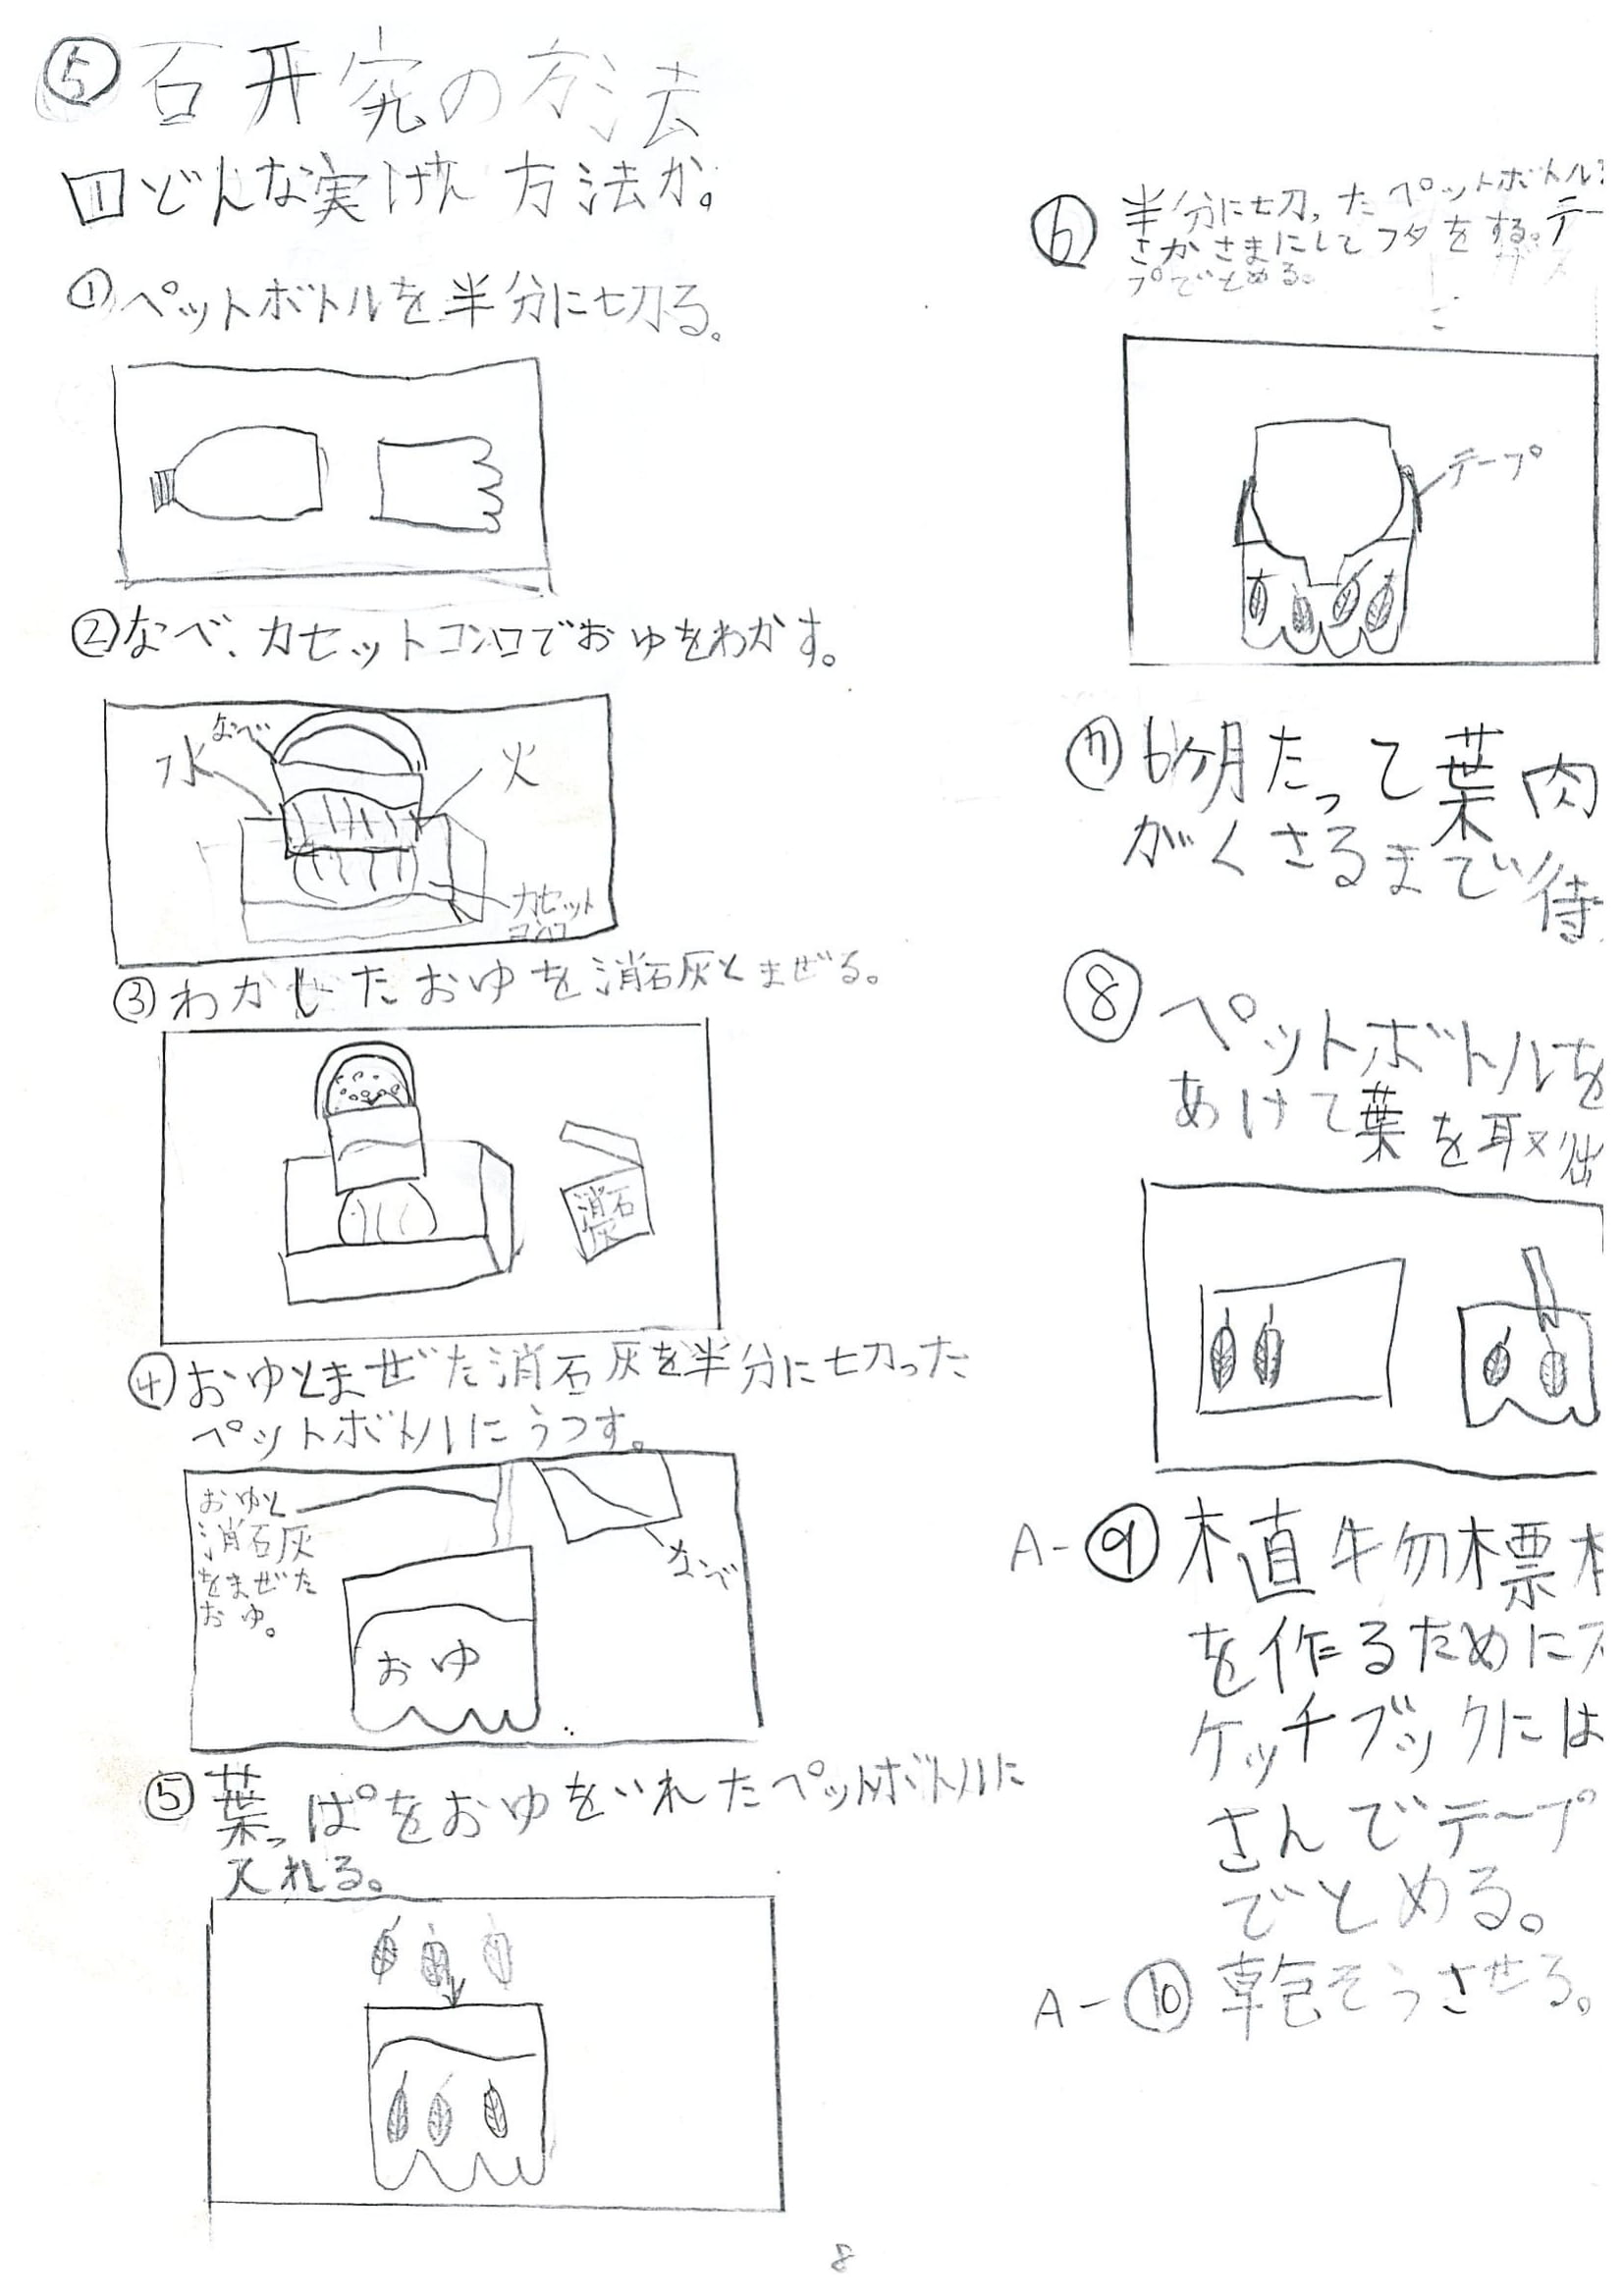 ⑤ 研究の方法
1 どんな実けん方法か。
① ペットボトルを半分に切る。
② なべ、カセットコンロでおゆをわかす。
なべ
水
火
カセット
コンロ
③ わかしたおゆを消石灰とまぜる。
消石
灰
④ おゆとまぜた消石灰を半分に切った
ペットボトルにうつす。
おゆと
消石灰
をまぜた
おゆ。
なべ
おゆ
⑤ 葉っぱをおゆをいれたペットボトルに
入れる。
⑥ 半分に切ったペットボトル
さかさまにしてフタをする。テー
プでとめる。
テープ
⑦ 6ヶ月たって葉肉
がくさるまで待
⑧ ペットボトルを
あけて葉を取出
A-⑨ 植物標本
を作るためにス
ケッチブックには
さんでテープ
でとめる。
A-⑩ 乾そうさせる。
8